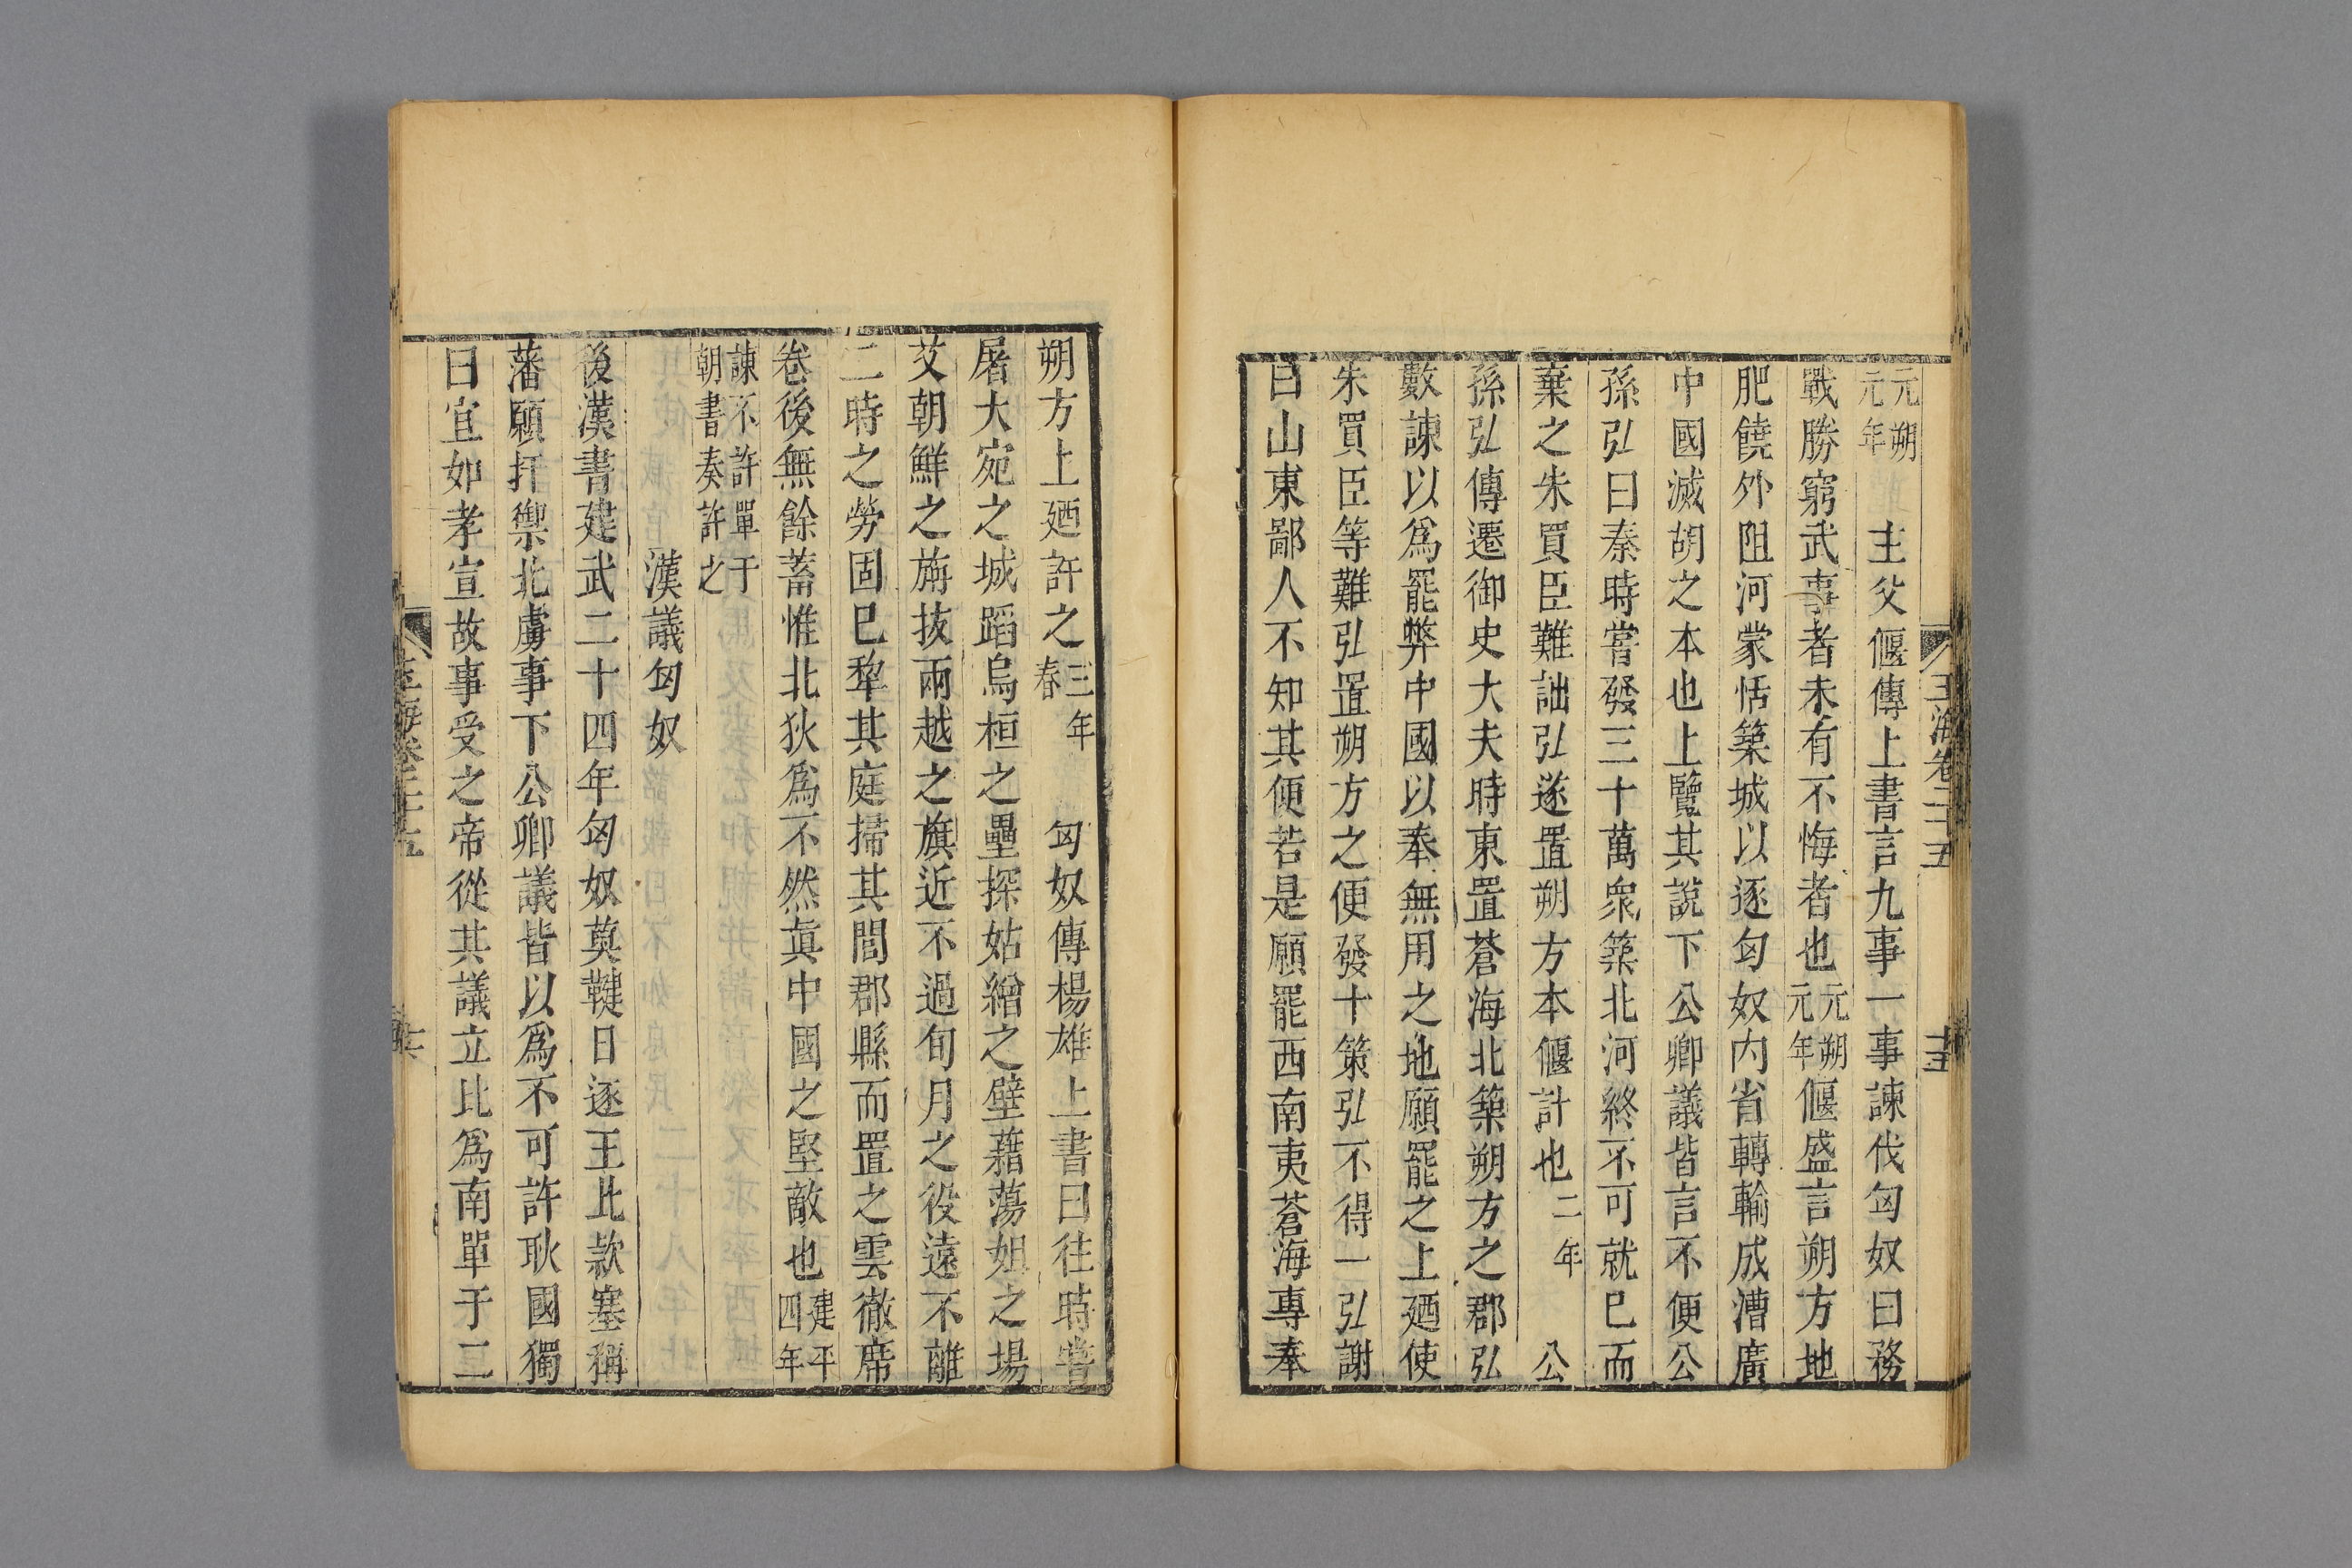 玉海卷二十五　十五
元朔元年　主父偃傳上書言九事一事諫伐匈奴曰務
戰勝窮武事者未有不悔者也元朔元年偃盛言朔方地
肥饒外阻河蒙恬築城以逐匈奴内省轉輸成漕廣
中國滅胡之本也上覽其說下公卿議皆言不便公
孫弘曰秦時嘗發三十萬衆築北河終不可就已而
棄之朱買臣難詘弘遂置朔方本偃計也二年　公
孫弘傳遷御史大夫時東置蒼海北築朔方之郡弘
數諫以爲罷弊中國以奉無用之地願罷之上廼使
朱買臣等難弘置朔方之便發十策弘不得一弘謝
曰山東鄙人不知其便若是願罷西南夷蒼海專奉
朔方上廼許之三年春　匈奴傳楊雄上書曰往時嘗
屠大宛之城蹈烏桓之壘探姑繒之壁藉蕩姐之場
艾朝鮮之旃拔兩越之旗近不過旬月之役遠不離
二時之勞固已犂其庭掃其閭郡縣而置之雲徹席
卷後無餘蓄惟北狄爲不然眞中國之堅敵也建平四年
諫不許單于朝書奏許之
漢議匈奴
後漢書建武二十四年匈奴薁鞬日逐王比款塞稱
藩願扞禦北虜事下公卿議皆以爲不可許耿國獨
曰宜如孝宣故事受之帝從其議立比爲南單于二
玉海卷二十五